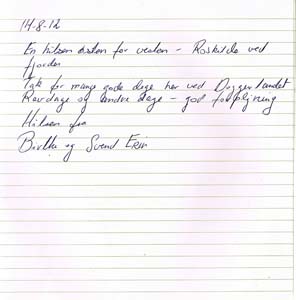 14-8-12
En hilsen østen for vesten - Roskilde ved
fjorden
Tak for mange gode dage her ved Doggerlandet
Ravdage og andre dage - god forplejning
Hilsen fra
Birthe og Svend Erik